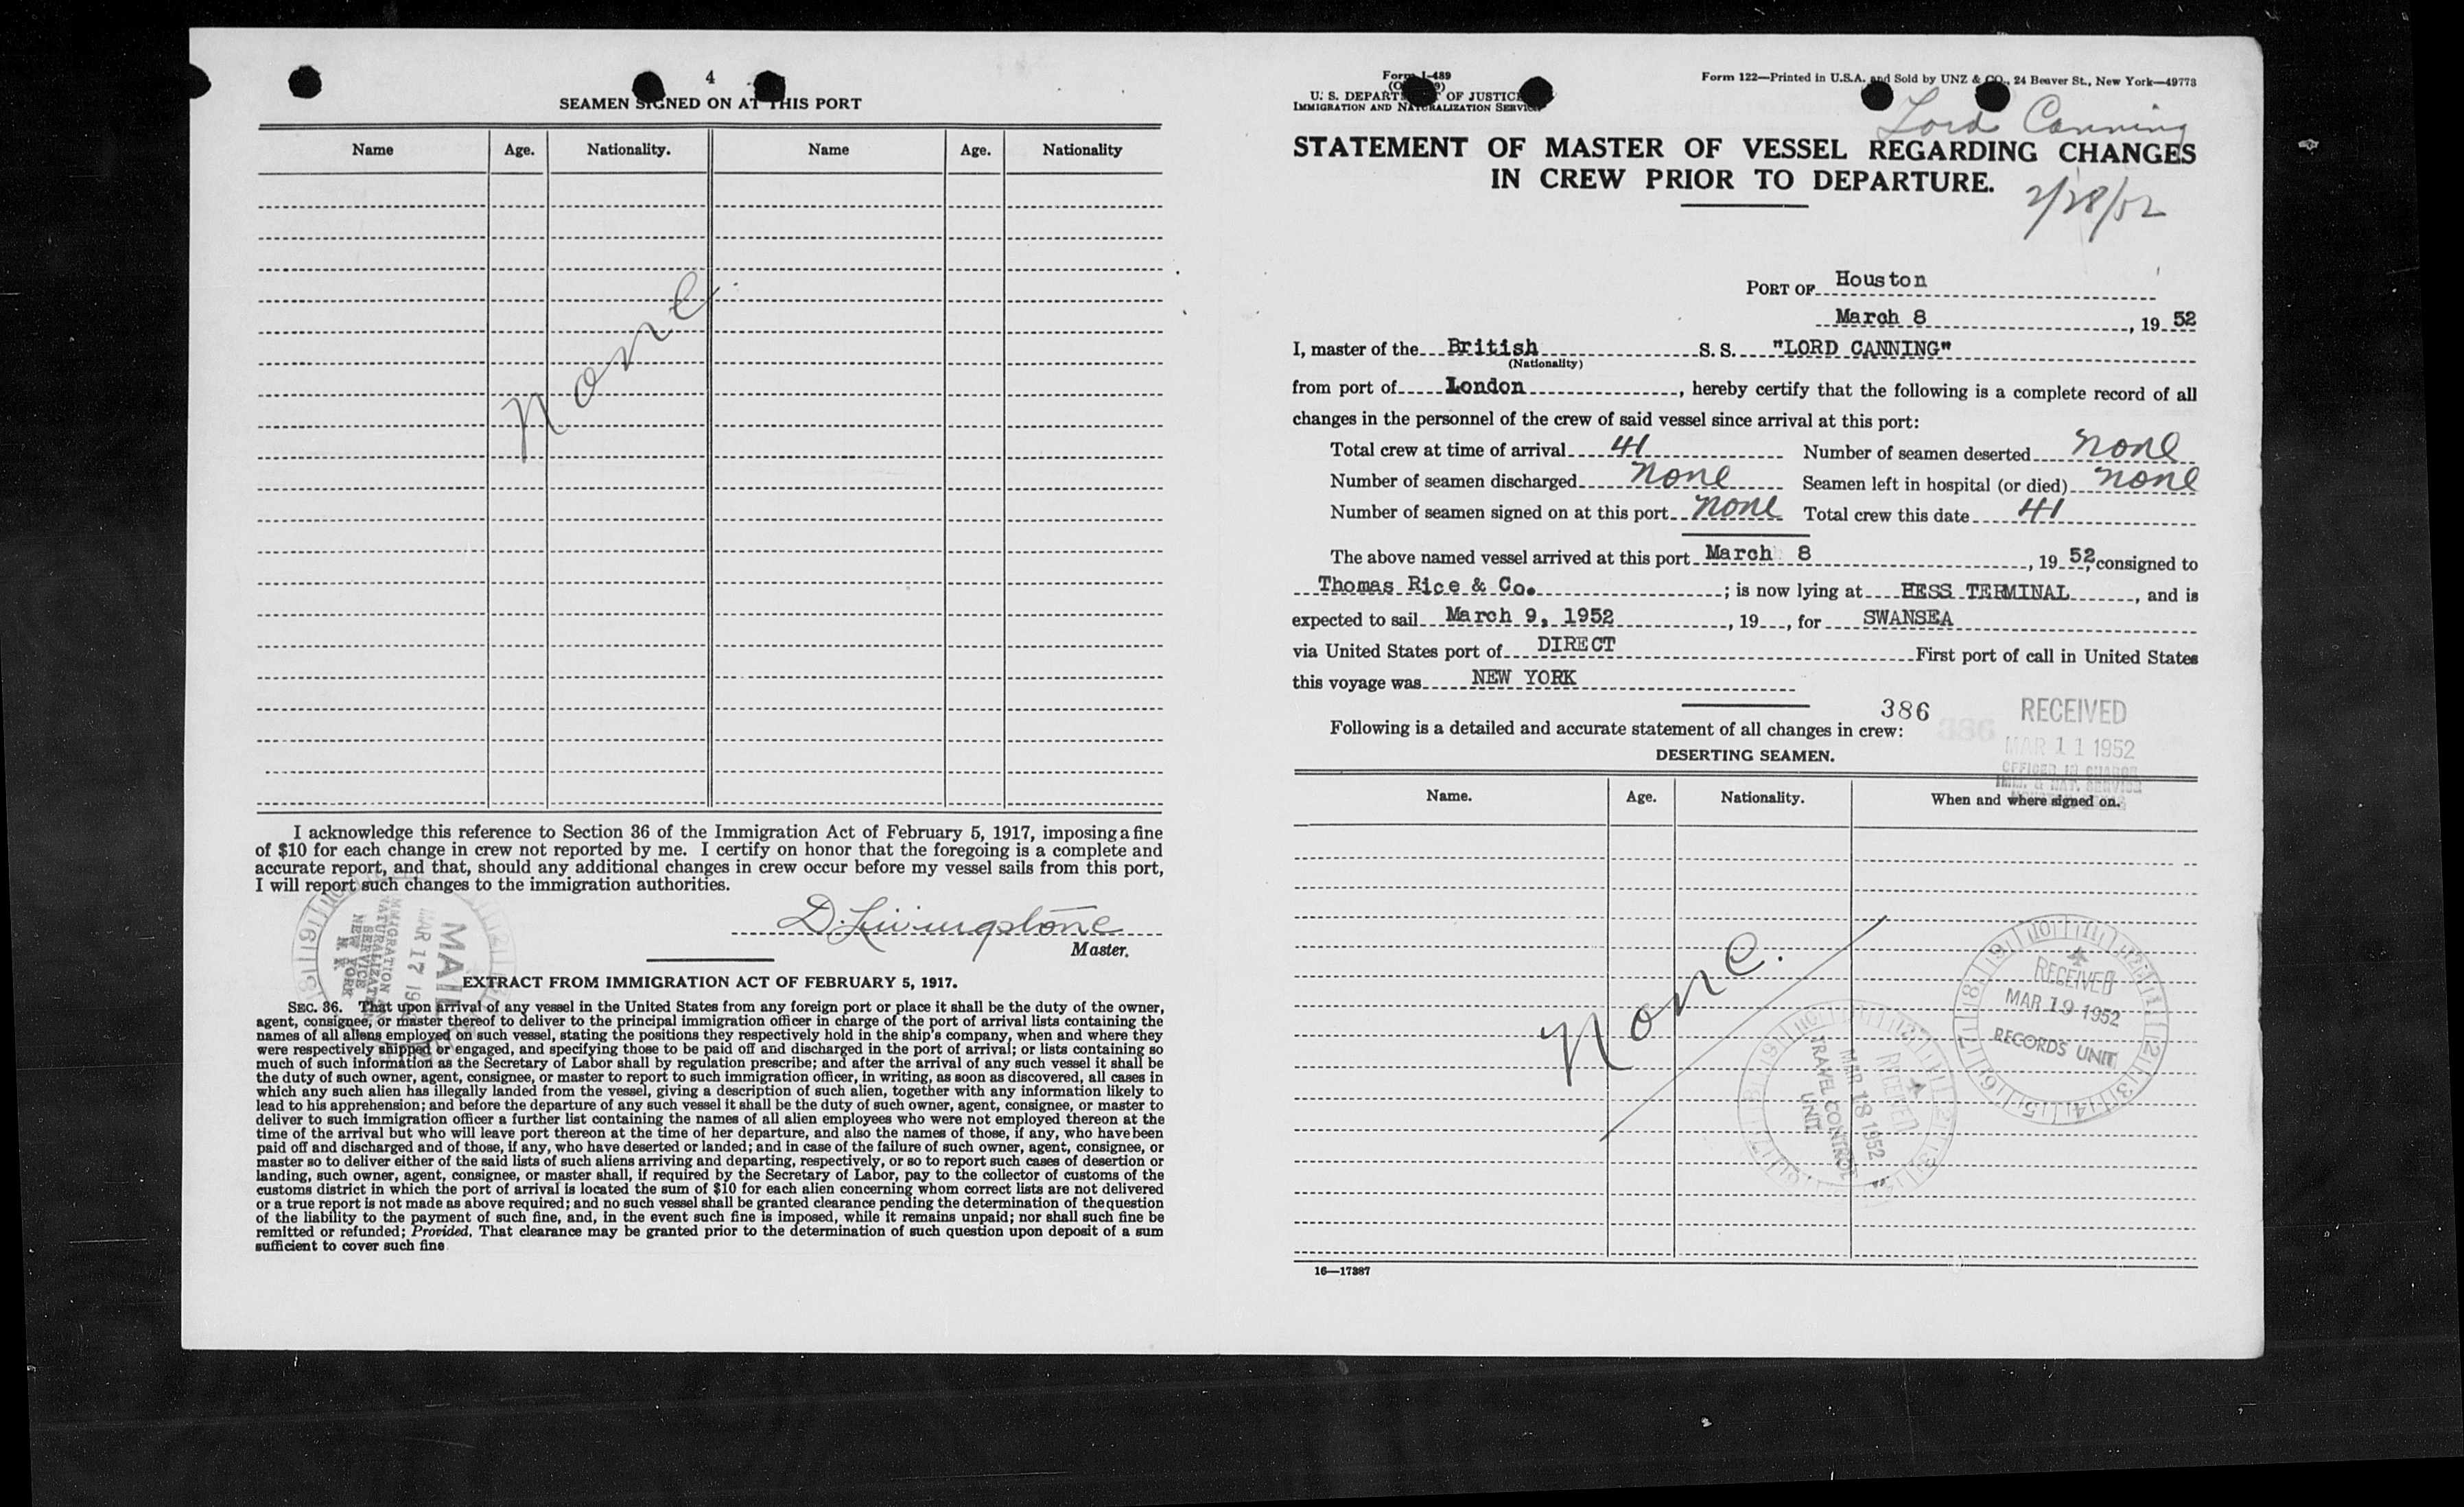 4
SEAMEN SIGNED ON AT THIS PORT
Name Age. Nationality. Name Age. Nationality
None.
I acknowledge this reference to Section 36 of the Immigration Act of February 5, 1917, imposing a fine
of $10 for each change in crew not reported by me. I certify on honor that the foregoing is a complete and
accurate report, and that, should any additional changes in crew occur before my vessel sails from this port,
I will report such changes to the immigration authorities.
D. Livingstone
Master.
MAIL
MAR 17
IMMIGRATION
NATURALIZATION
SERVICE
NEW YORK
N. Y.
EXTRACT FROM IMMIGRATION ACT OF FEBRUARY 5, 1917.
SEC. 36. That upon arrival of any vessel in the United States from any foreign port or place it shall be the duty of the owner,
agent, consignee, or master thereof to deliver to the principal immigration officer in charge of the port of arrival lists containing the
names of all aliens employed on such vessel, stating the positions they respectively hold in the ship's company, when and where they
were respectively shipped or engaged, and specifying those to be paid off and discharged in the port of arrival; or lists containing so
much of such information as the Secretary of Labor shall by regulation prescribe; and after the arrival of any such vessel it shall be
the duty of such owner, agent, consignee, or master to report to such immigration officer, in writing, as soon as discovered, all cases in
which any such alien has illegally landed from the vessel, giving a description of such alien, together with any information likely to
lead to his apprehension; and before the departure of any such vessel it shall be the duty of such owner, agent, consignee, or master to
deliver to such immigration officer a further list containing the names of all alien employees who were not employed thereon at the
time of the arrival but who will leave port thereon at the time of her departure, and also the names of those, if any, who have been
paid off and discharged and of those, if any, who have deserted or landed; and in case of the failure of such owner, agent, consignee, or
master so to deliver either of the said lists of such aliens arriving and departing, respectively, or so to report such cases of desertion or
landing, such owner, agent, consignee, or master shall, if required by the Secretary of Labor, pay to the collector of customs of the
customs district in which the port of arrival is located the sum of $10 for each alien concerning whom correct lists are not delivered
or a true report is not made as above required; and no such vessel shall be granted clearance pending the determination of the question
of the liability to the payment of such fine, and, in the event such fine is imposed, while it remains unpaid; nor shall such fine be
remitted or refunded; Provided, That clearance may be granted prior to the determination of such question upon deposit of a sum
sufficient to cover such fine
Form I-489
U. S. DEPARTMENT OF JUSTICE
IMMIGRATION AND NATURALIZATION SERVICE
Form 122—Printed in U.S.A. and Sold by UNZ & CO., 24 Beaver St., New York—49773
Lord Canning
STATEMENT OF MASTER OF VESSEL REGARDING CHANGES
IN CREW PRIOR TO DEPARTURE.
2/28/52
PORT OF Houston
March 8, 19 52
I, master of the British S. S. "LORD CANNING"
(Nationality)
from port of London, hereby certify that the following is a complete record of all
changes in the personnel of the crew of said vessel since arrival at this port:
Total crew at time of arrival 41 Number of seamen deserted none
Number of seamen discharged none Seamen left in hospital (or died) none
Number of seamen signed on at this port none Total crew this date 41
The above named vessel arrived at this port March 8, 19 52, consigned to
Thomas Rice & Co. ; is now lying at HESS TERMINAL, and is
expected to sail March 9, 1952, 19, for SWANSEA
via United States port of DIRECT First port of call in United States
this voyage was NEW YORK
386
RECEIVED
MAR 11 1952
OFFICER IN CHARGE
IMM. & NAT. SERVICE
Following is a detailed and accurate statement of all changes in crew:
DESERTING SEAMEN.
Name. Age. Nationality. When and where signed on.
None.
RECEIVED
MAR 19 1952
RECORDS UNIT
RECEIVED
MAR 18 1952
TRAVEL CONTROL
UNIT
16—17387